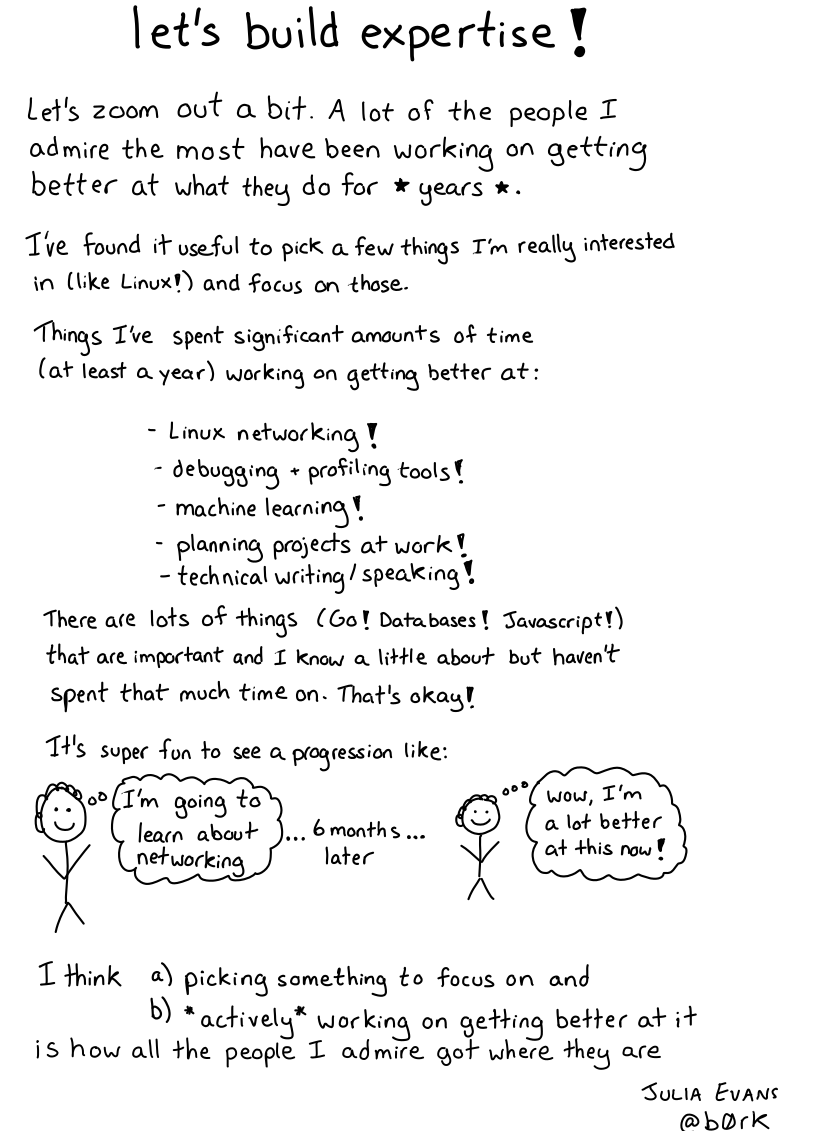 let's build expertise!
Let's zoom out a bit. A lot of the people I
admire the most have been working on getting
better at what they do for *years*.
I've found it useful to pick a few things I'm really interested
in (like Linux!) and focus on those.
Things I've spent significant amounts of time
(at least a year) working on getting better at:
- Linux networking!
- debugging + profiling tools!
- machine learning!
- planning projects at work!
- technical writing/speaking!
There are lots of things (Go! Databases! Javascript!)
that are important and I know a little about but haven't
spent that much time on. That's okay!
It's super fun to see a progression like:
I'm going to
learn about
networking
... 6 months ...
later
wow, I'm
a lot better
at this now!
I think a) picking something to focus on and
b) *actively* working on getting better at it
is how all the people I admire got where they are
JULIA EVANS
@b0rk